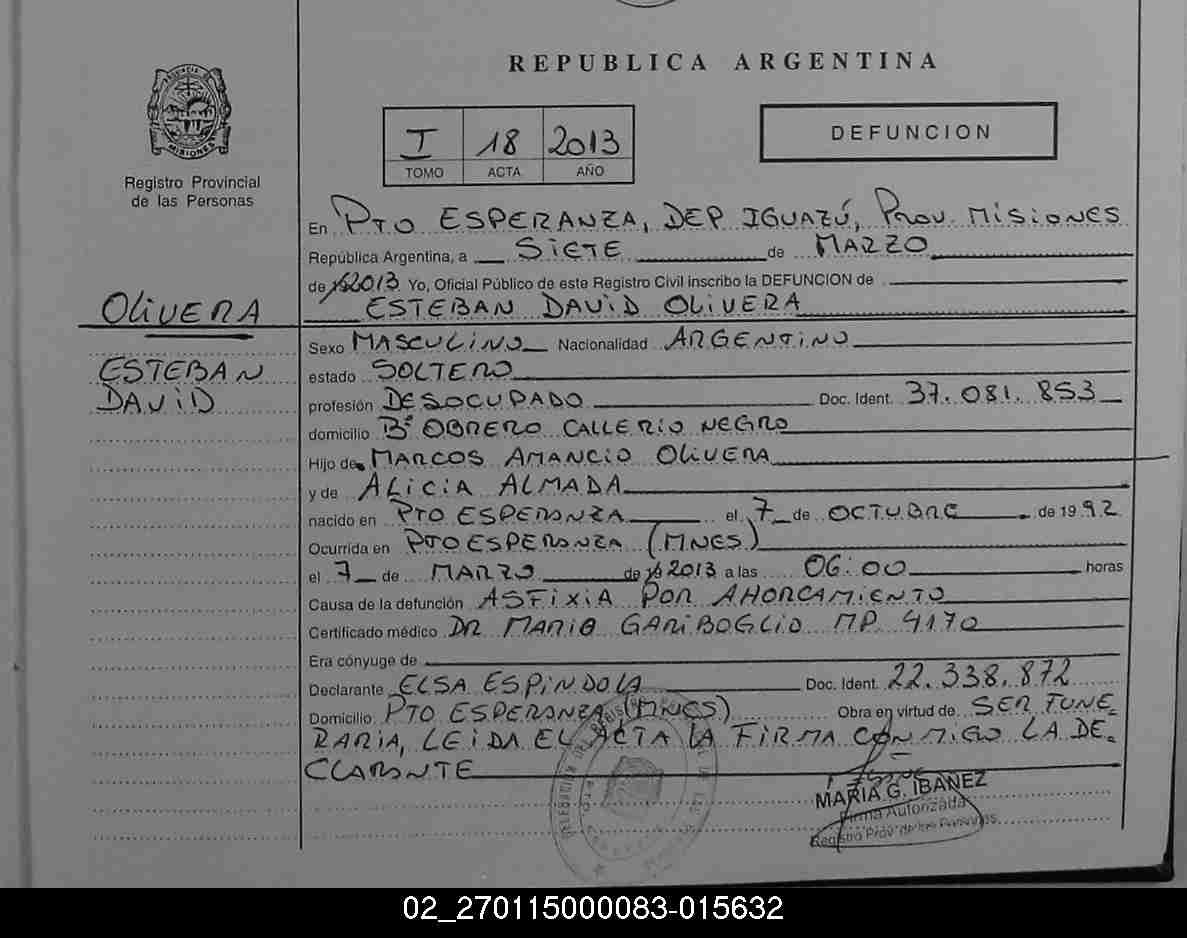 REPUBLICA ARGENTINA
PROVINCIA DE
MISIONES
Registro Provincial
de las Personas
I 18 2013
TOMO ACTA AÑO
DEFUNCION
En PTO ESPERANZA, DEP IGUAZÚ, PROV. MISIONES
República Argentina, a SIETE de MARZO
de 2013 Yo, Oficial Público de este Registro Civil inscribo la DEFUNCION de
OLIVERA
ESTEBAN DAVID OLIVERA
Sexo MASCULINO Nacionalidad ARGENTINO
ESTEBAN
estado SOLTERO
DAVID
profesión DESOCUPADO Doc. Ident. 37.081.853
domicilio Bº OBRERO CALLE RIO NEGRO
Hijo de MARCOS AMANCIO OLIVERA
y de ALICIA ALMADA
nacido en PTO ESPERANZA el 7 de OCTUBRE de 1992
Ocurrida en PTO ESPERANZA (MNES)
el 7 de MARZO de 2013 a las 06:00 horas
Causa de la defunción ASFIXIA POR AHORCAMIENTO
Certificado médico DR MARIO GARIBOGLIO MP. 4170
Era cónyuge de
Declarante ELSA ESPINDOLA Doc. Ident. 22.338.872
Domicilio PTO ESPERANZA (MNES) Obra en virtud de SER FUNE-
RARIA, LEIDA EL ACTA LA FIRMA CONMIGO LA DE-
CLARANTE
MARIA G. IBAÑEZ
Firma Autorizada
Registro Prov. de las Personas
02_270115000083-015632